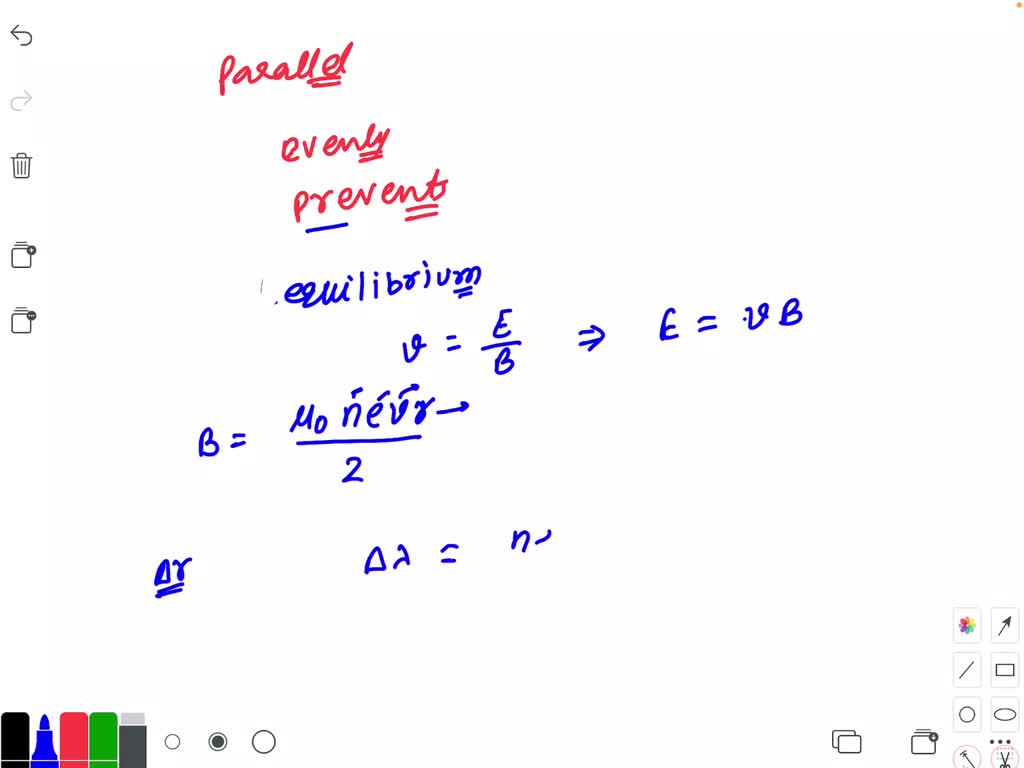 Parallel
evenly
prevents
equilibrium
v = E/B ⇒ E = vB
B = μ₀ n e v r → / 2
Δr Δλ = n